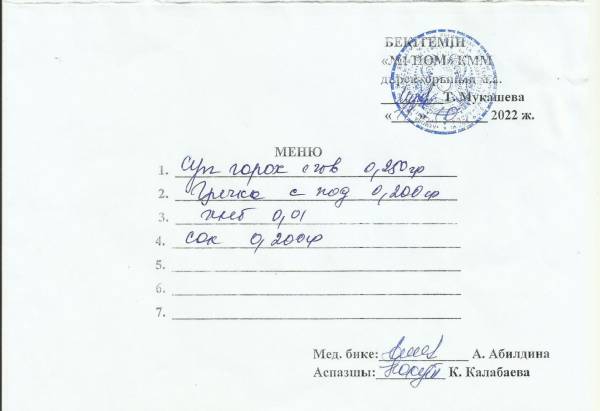 БЕКІТЕМІН
КММ
Т. Мукашева
« » 10 2022 ж.
МЕНЮ
1. Суп горох с гов 0,250гр
2. Гречка с под 0,200гр
3. хлеб 0,01
4. сок 0,200гр
5.
6.
7.
Мед. бике: А. Абилдина
Аспазшы: К. Калабаева